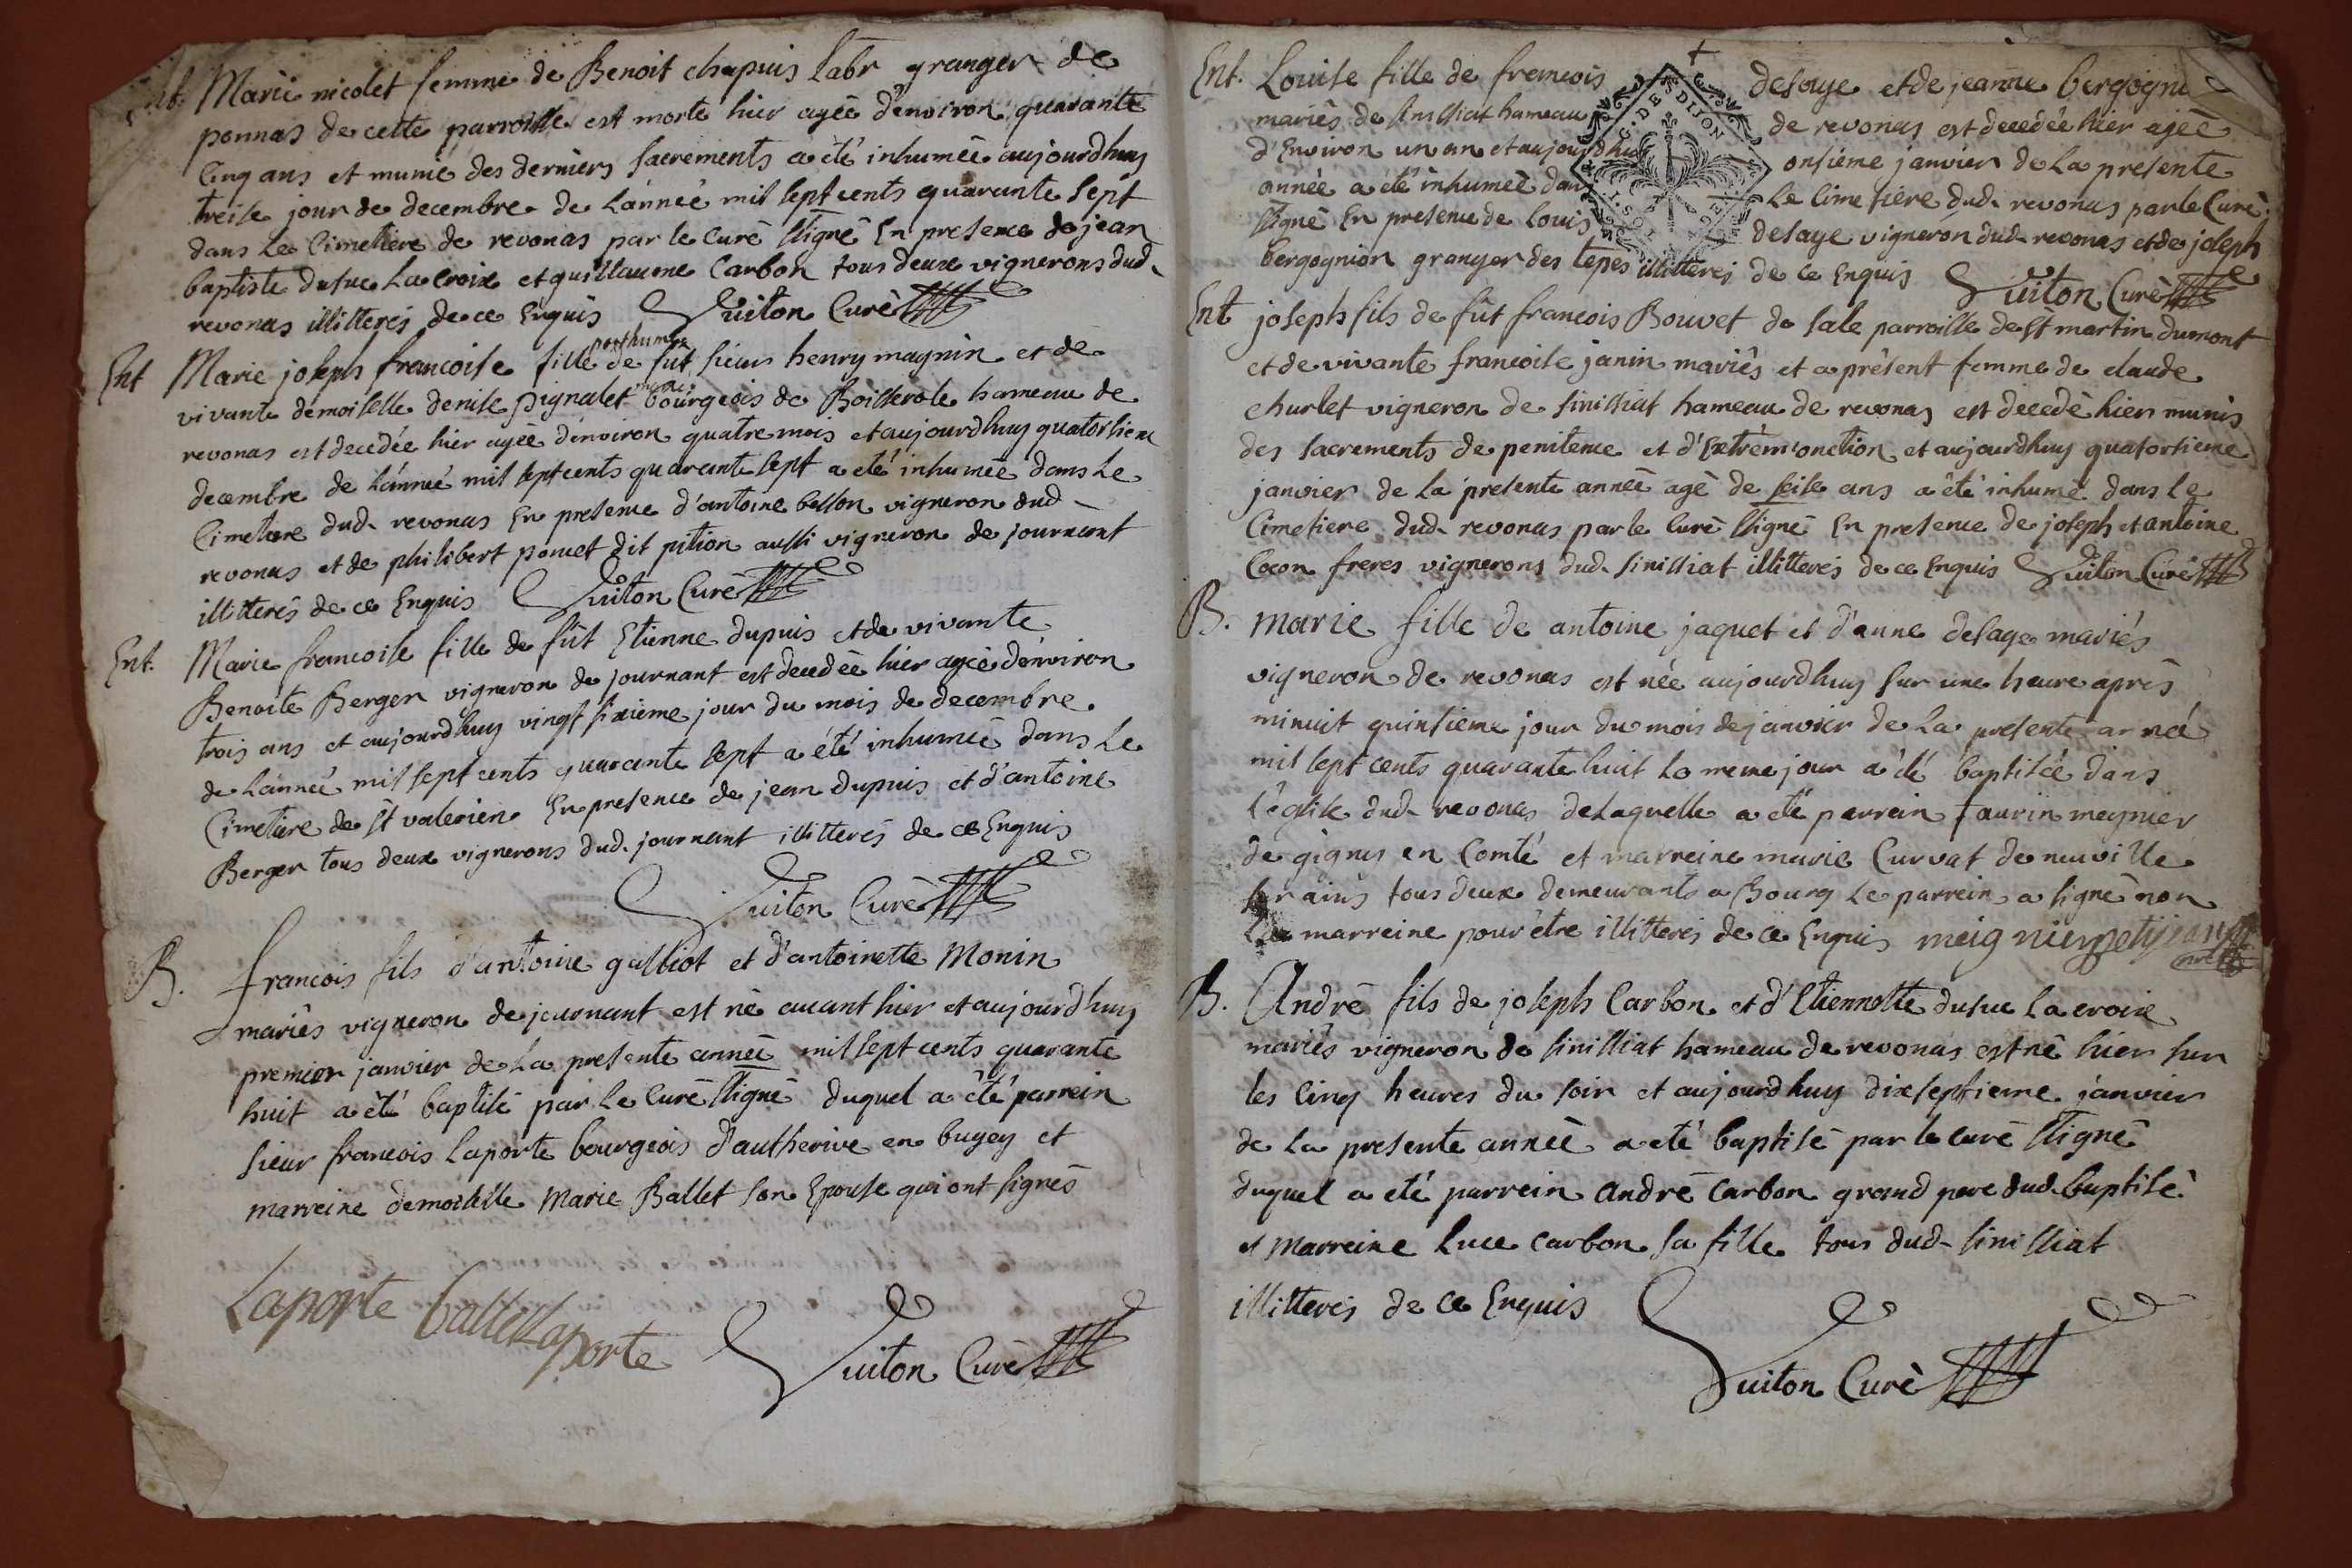 Ent. Marie nicolet femme de Benoit chapuis labr granger de
ponnas de cette parroisse est morte hier agée d'environ quarante
Cinq ans et munie des derniers sacrements a été inhumée aujourdhuy
treise jour de decembre de l'année mil sept cents quarante sept
dans le Cimetiere de revonas par le curé ssigné En presence de jean
baptiste dufue La croix et guillaume Carbon tous deux vignerons dud.
revonas illitterés de ce Enquis Vuiton Curé
Ent Marie joseph francoise fille posthume de fut sieur henry magnin et de
vivante demoiselle denise pignalet bourgeois de Boisserole hameau de
revonas est decedée hier agée d'environ quatre mois et aujourdhuy quatorsieme
decembre de l'année mil sept cents quarante sept a eté inhumée dans le
Cimetiere dud. revonas En presence d'antoine bellon vigneron dud
revonas et de philibert poncet dit pition aussi vigneron de journant
illitterés de ce Enquis Vuiton Curé
Ent. Marie francoise fille de fût Etienne dupuis et de vivante
Benoite Berger vigneron de journant est decedée hier agée d'environ
trois ans et aujourdhuy vingt sixieme jour du mois de decembre
de l'année mil sept cents quarante sept a été inhumée dans le
Cimetiere de st valerien En presence de jean dupuis et d'antoine
Berger tous deux vignerons dud. journant illitterés de ce Enquis
Vuiton Curé
B. francois fils d'antoine galliot et d'antoinette Monin
mariés vigneron de journant est né avant hier et aujourdhuy
premier janvier de la presente année mil sept cents quarante
huit a été baptisé par le curé ssigné duquel a été parrein
sieur francois laporte bourgeois d'autherive en bugey et
marreine demoiselle Marie Ballet son Epouse qui ont signés
Laporte ballet Laporte Vuiton Curé
Ent. Louise fille de francois desaye et de jeanne bergogni
mariés de sinissiat hameau de revonas est decedée hier agée
d'Environ un an et aujourdhuy onsiéme janvier de la presente
année a été inhumée dans le Cimetiere dud. revonas par le Curé
ssigné En presence de Louis desaye vigneron dud. revonas et de joseph
bergognion granger des tepes illitterés de ce Enquis Vuiton Curé
G. DE DIJON
Ent joseph fils de fût francois Bouvet de sale parroisse de st martin dumont
et de vivante francoise janin mariés et a présent femme de claude
churlet vigneron de sinissiat hameau de revonas est decedé hier munis
des sacrements de penitence et d'Extrem'onction et aujourdhuy quatorsieme
janvier de la présente année agé de seise ans a été inhumé dans le
Cimetiere dud. revonas par le Curé ssigné En presence de joseph et antoine
Cocon freres vignerons dud. sinissiat illitterés de ce Enquis Vuiton Curé
B. marie fille de antoine jaquet et d'anne desaye mariés
vigneron de revonas est née aujourdhuy sur une heure après
minuit quinsieme jour du mois de janvier de la presente année
mil sept cents quarante huit le meme jour a été baptisée dans
l'église dud. revonas de laquelle a été parrein taurin meynier
de gignes en Comté et marreine marie Curvat de neuville
sur ains tous deux demeurants a Bourg le parrein a signé non
la marreine pour être illitterés de ce Enquis
B. André fils de joseph Carbon et d'Etiennette dufue La croix
mariés vigneron de sinissiat hameau de revonas est né hier sur
les Cinq heures du soir et aujourdhuy dixseptieme janvier
de la presente année a eté baptisé par le curé ssigné
duquel a eté parrein andré Carbon grand pere dud. baptisé
et Marreine Luce carbon sa fille tous dud. sinissiat
illitterés de ce Enquis
Vuiton Curé